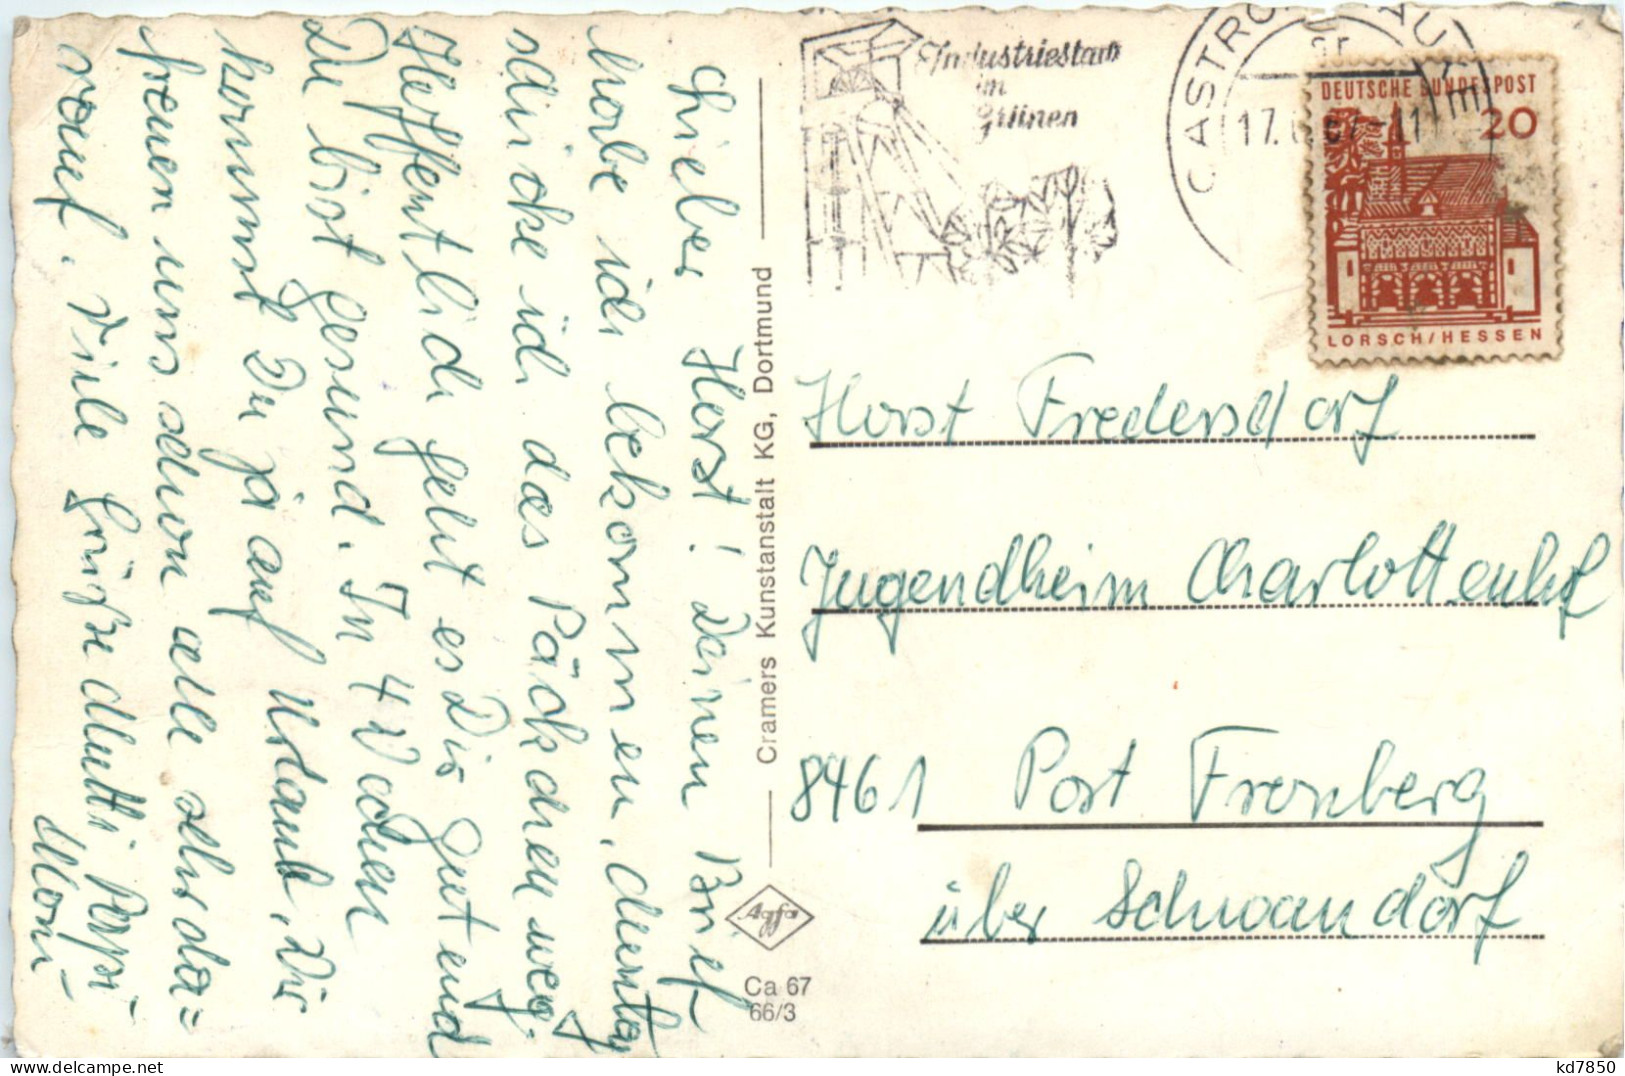 Lieber Horst! Deinen Brief
habe ich bekommen, dienstag
schicke ich das Päckchen weg.
Hoffentlich geht es Dir gut und
Du bist gesund. In 4 Wochen
kommst Du ja auf Urlaub, Wir
freuen uns schon alle sehr da=
rauf. Viele Grüße Mutti Pappi
Moni
Cramers Kunstanstalt KG, Dortmund
Agfa
Ca 67
66/3
Industriestadt
im
Grünen
CASTROP-RAU
17.
DEUTSCHE BUNDESPOST
20
LORSCH/HESSEN
Horst Fredersdorf
Jugendheim Charlottenhof
8461 Post Fronberg
über Schwandorf
kd7850